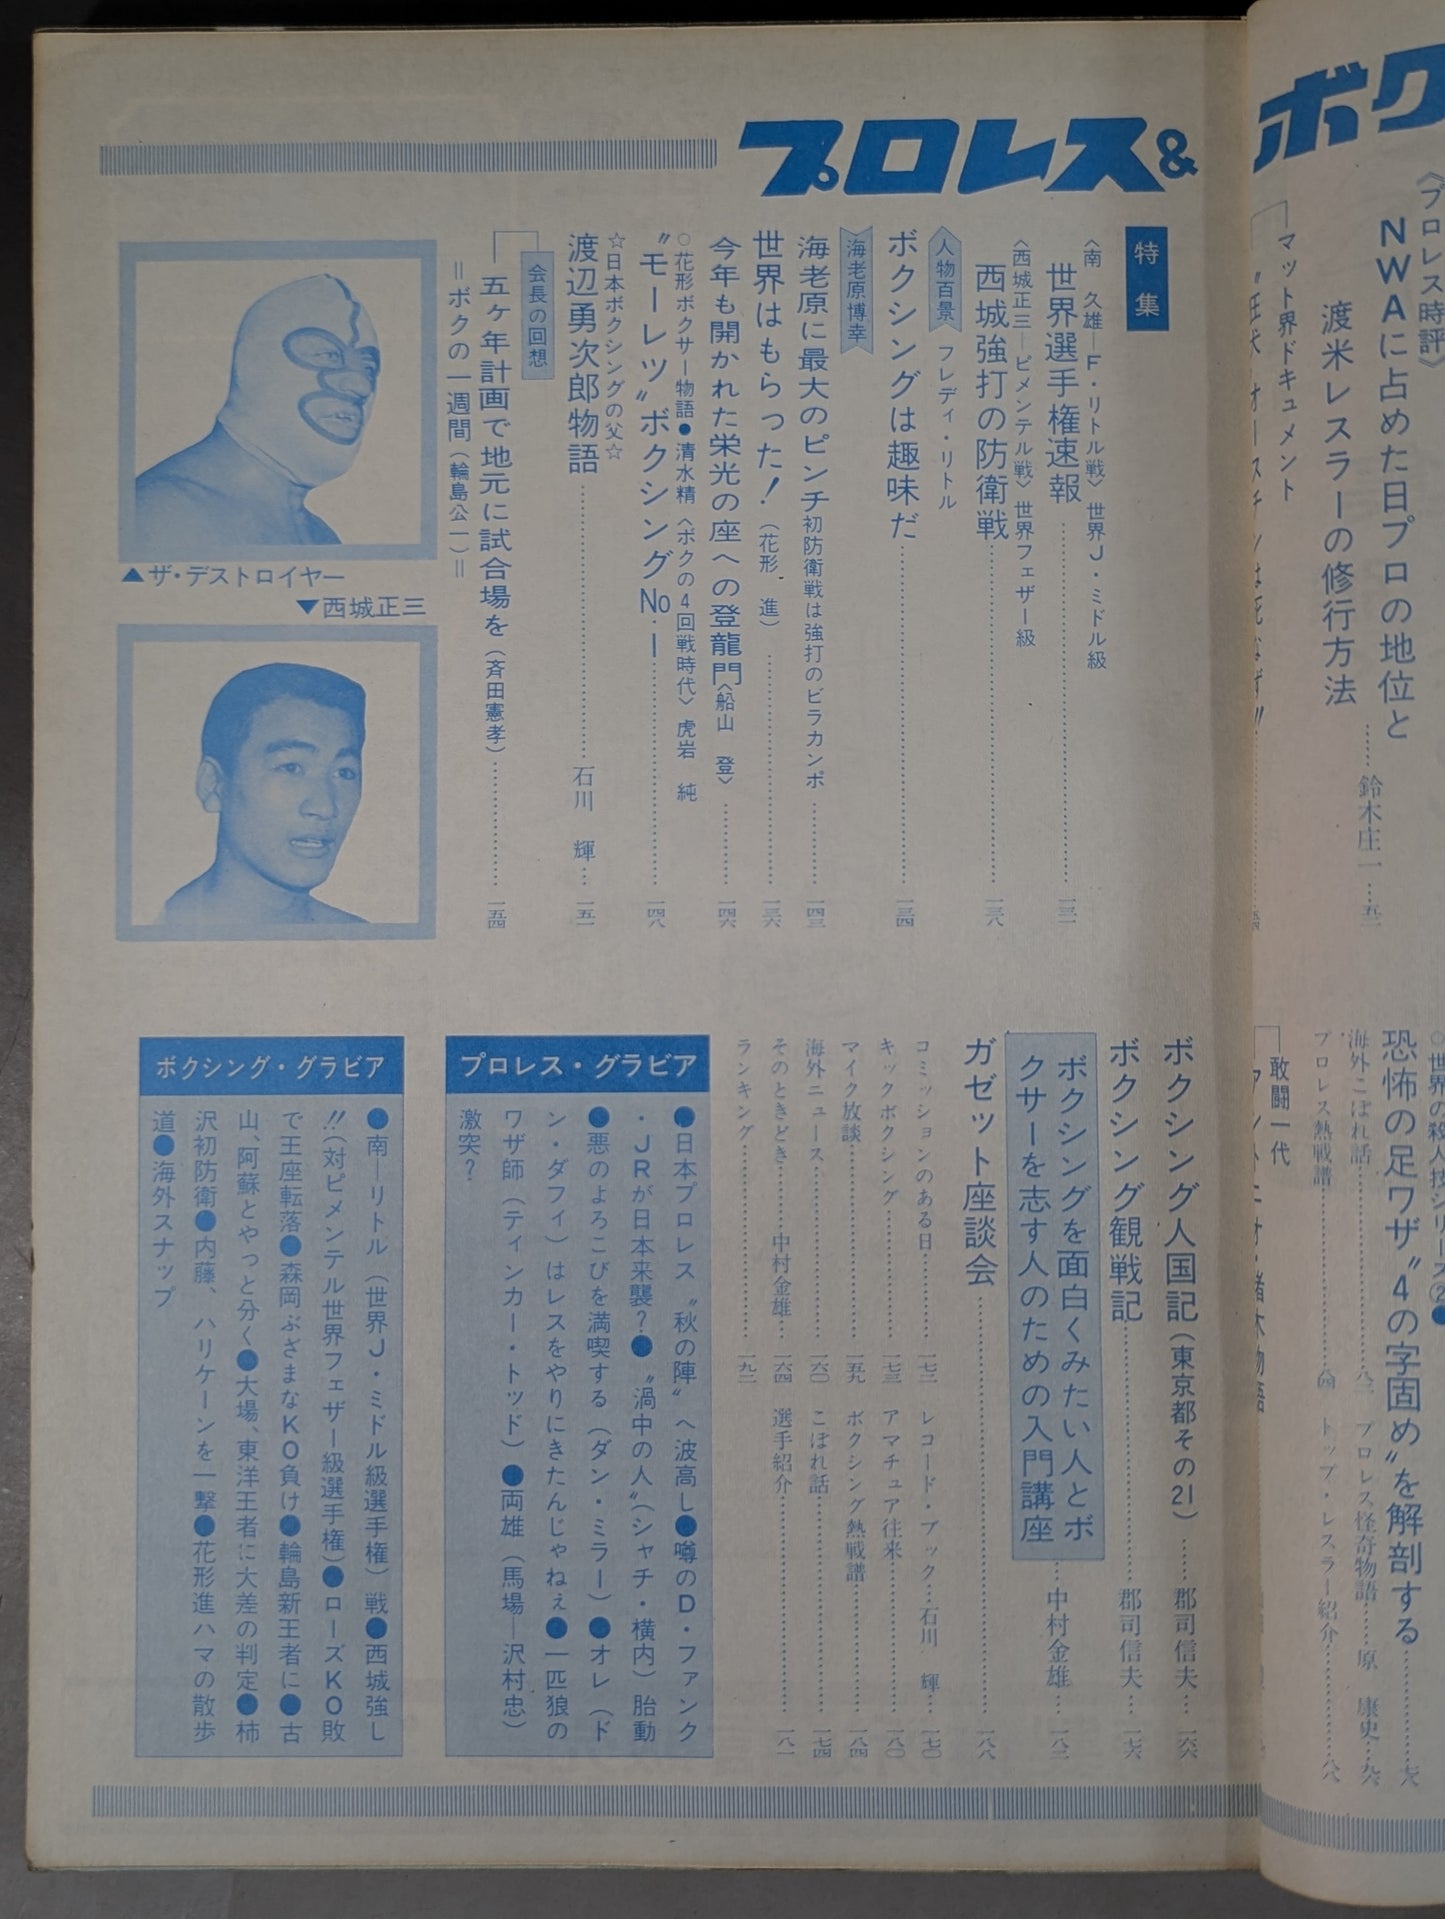 ボク
〈プロレス時評〉
NWAに占めた日プロの地位と
渡米レスラーの修行方法……鈴木庄一…五二
マット界ドキュメント
○世界の殺人技シリーズ②●
恐怖の足ワザ〝4の字固め〟を解剖する
海外こぼれ話
プロレス怪奇物語……原 康史
プロレス熱戦譜
トップ・レスラー紹介
敢闘一代
アントニオ・猪木物語
プロレス&
特集
〈南 久雄―F・リトル戦〉世界J・ミドル級
世界選手権速報……一三一
〈西城正三―ピメンテル戦〉世界フェザー級
西城強打の防衛戦……一三八
人物百景 フレディ・リトル
ボクシングは趣味だ……一三四
海老原博幸
海老原に最大のピンチ 初防衛戦は強打のビラカンポ……一四三
世界はもらった!(花形 進)……一三六
今年も開かれた栄光の座への登龍門〈船山 登〉……一四六
○花形ボクサー物語●清水精〈ボクの4回戦時代〉虎岩 純
〝モーレツ〟ボクシングNo.1……一四八
☆日本ボクシングの父☆
渡辺勇次郎物語……石川 輝…一五一
会長の回想
五ヶ年計画で地元に試合場を(斉田憲孝)……一五四
=ボクの一週間(輪島公一)=
▲ザ・デストロイヤー
▼西城正三
ボクシング人国記(東京都その21)……郡司信夫…一六六
ボクシング観戦記……郡司信夫…一七六
ボクシングを面白くみたい人とボ
クサーを志す人のための入門講座…中村金雄…一八二
ガゼット座談会……一八八
コミッションのある日……一七二
レコード・ブック…石川 輝…一七〇
キックボクシング……一七三
アマチュア往来……一八〇
マイク放談……一五九
ボクシング熱戦譜……一八四
海外ニュース……一六〇
こぼれ話……一七四
そのときどき……中村金雄…一六四
選手紹介……一八一
ランキング……一九二
プロレス・グラビア
●日本プロレス〝秋の陣〟へ波高し●噂のD・ファンク
・JRが日本来襲?●〝渦中の人〟(シャチ・横内)胎動
●悪のよろこびを満喫する(ダン・ミラー)●オレ(ド
ン・ダフィ)はレスをやりにきたんじゃねぇ●一匹狼の
ワザ師(ティンカー・トッド)●両雄(馬場―沢村忠)
激突?
ボクシング・グラビア
●南―リトル(世界J・ミドル級選手権)戦●西城強し
!!(対ピメンテル世界フェザー級選手権)●ローズKO敗
で王座転落●森岡ぶざまなKO負け●輪島新王者に●古
山、阿蘇とやっと分く●大場、東洋王者に大差の判定●柿
沢初防衛●内藤、ハリケーンを一撃●花形進ハマの散歩
道●海外スナップ